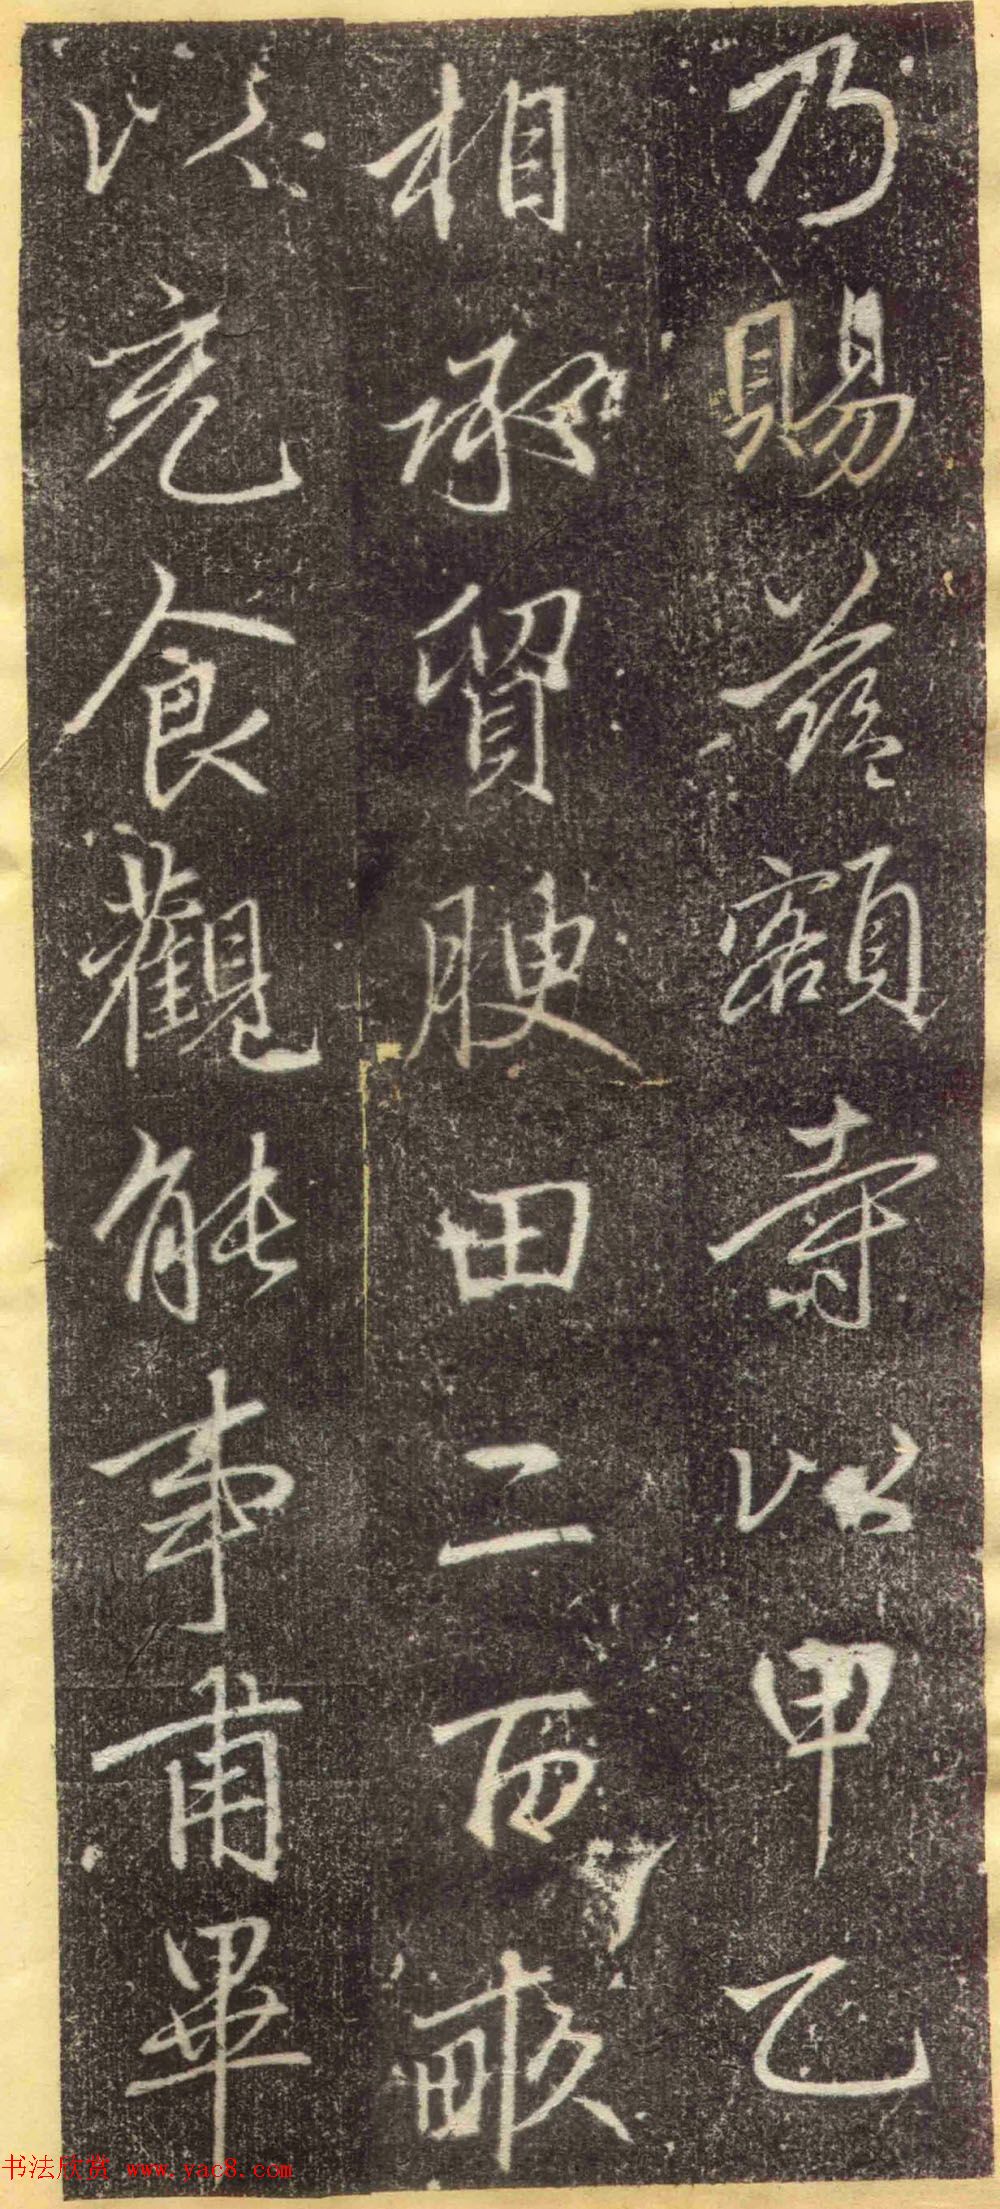 乃賜兹額寺以甲乙
相承貿腴田二百畝
以充食觀能事甫畢
书法欣赏 www.yac8.com